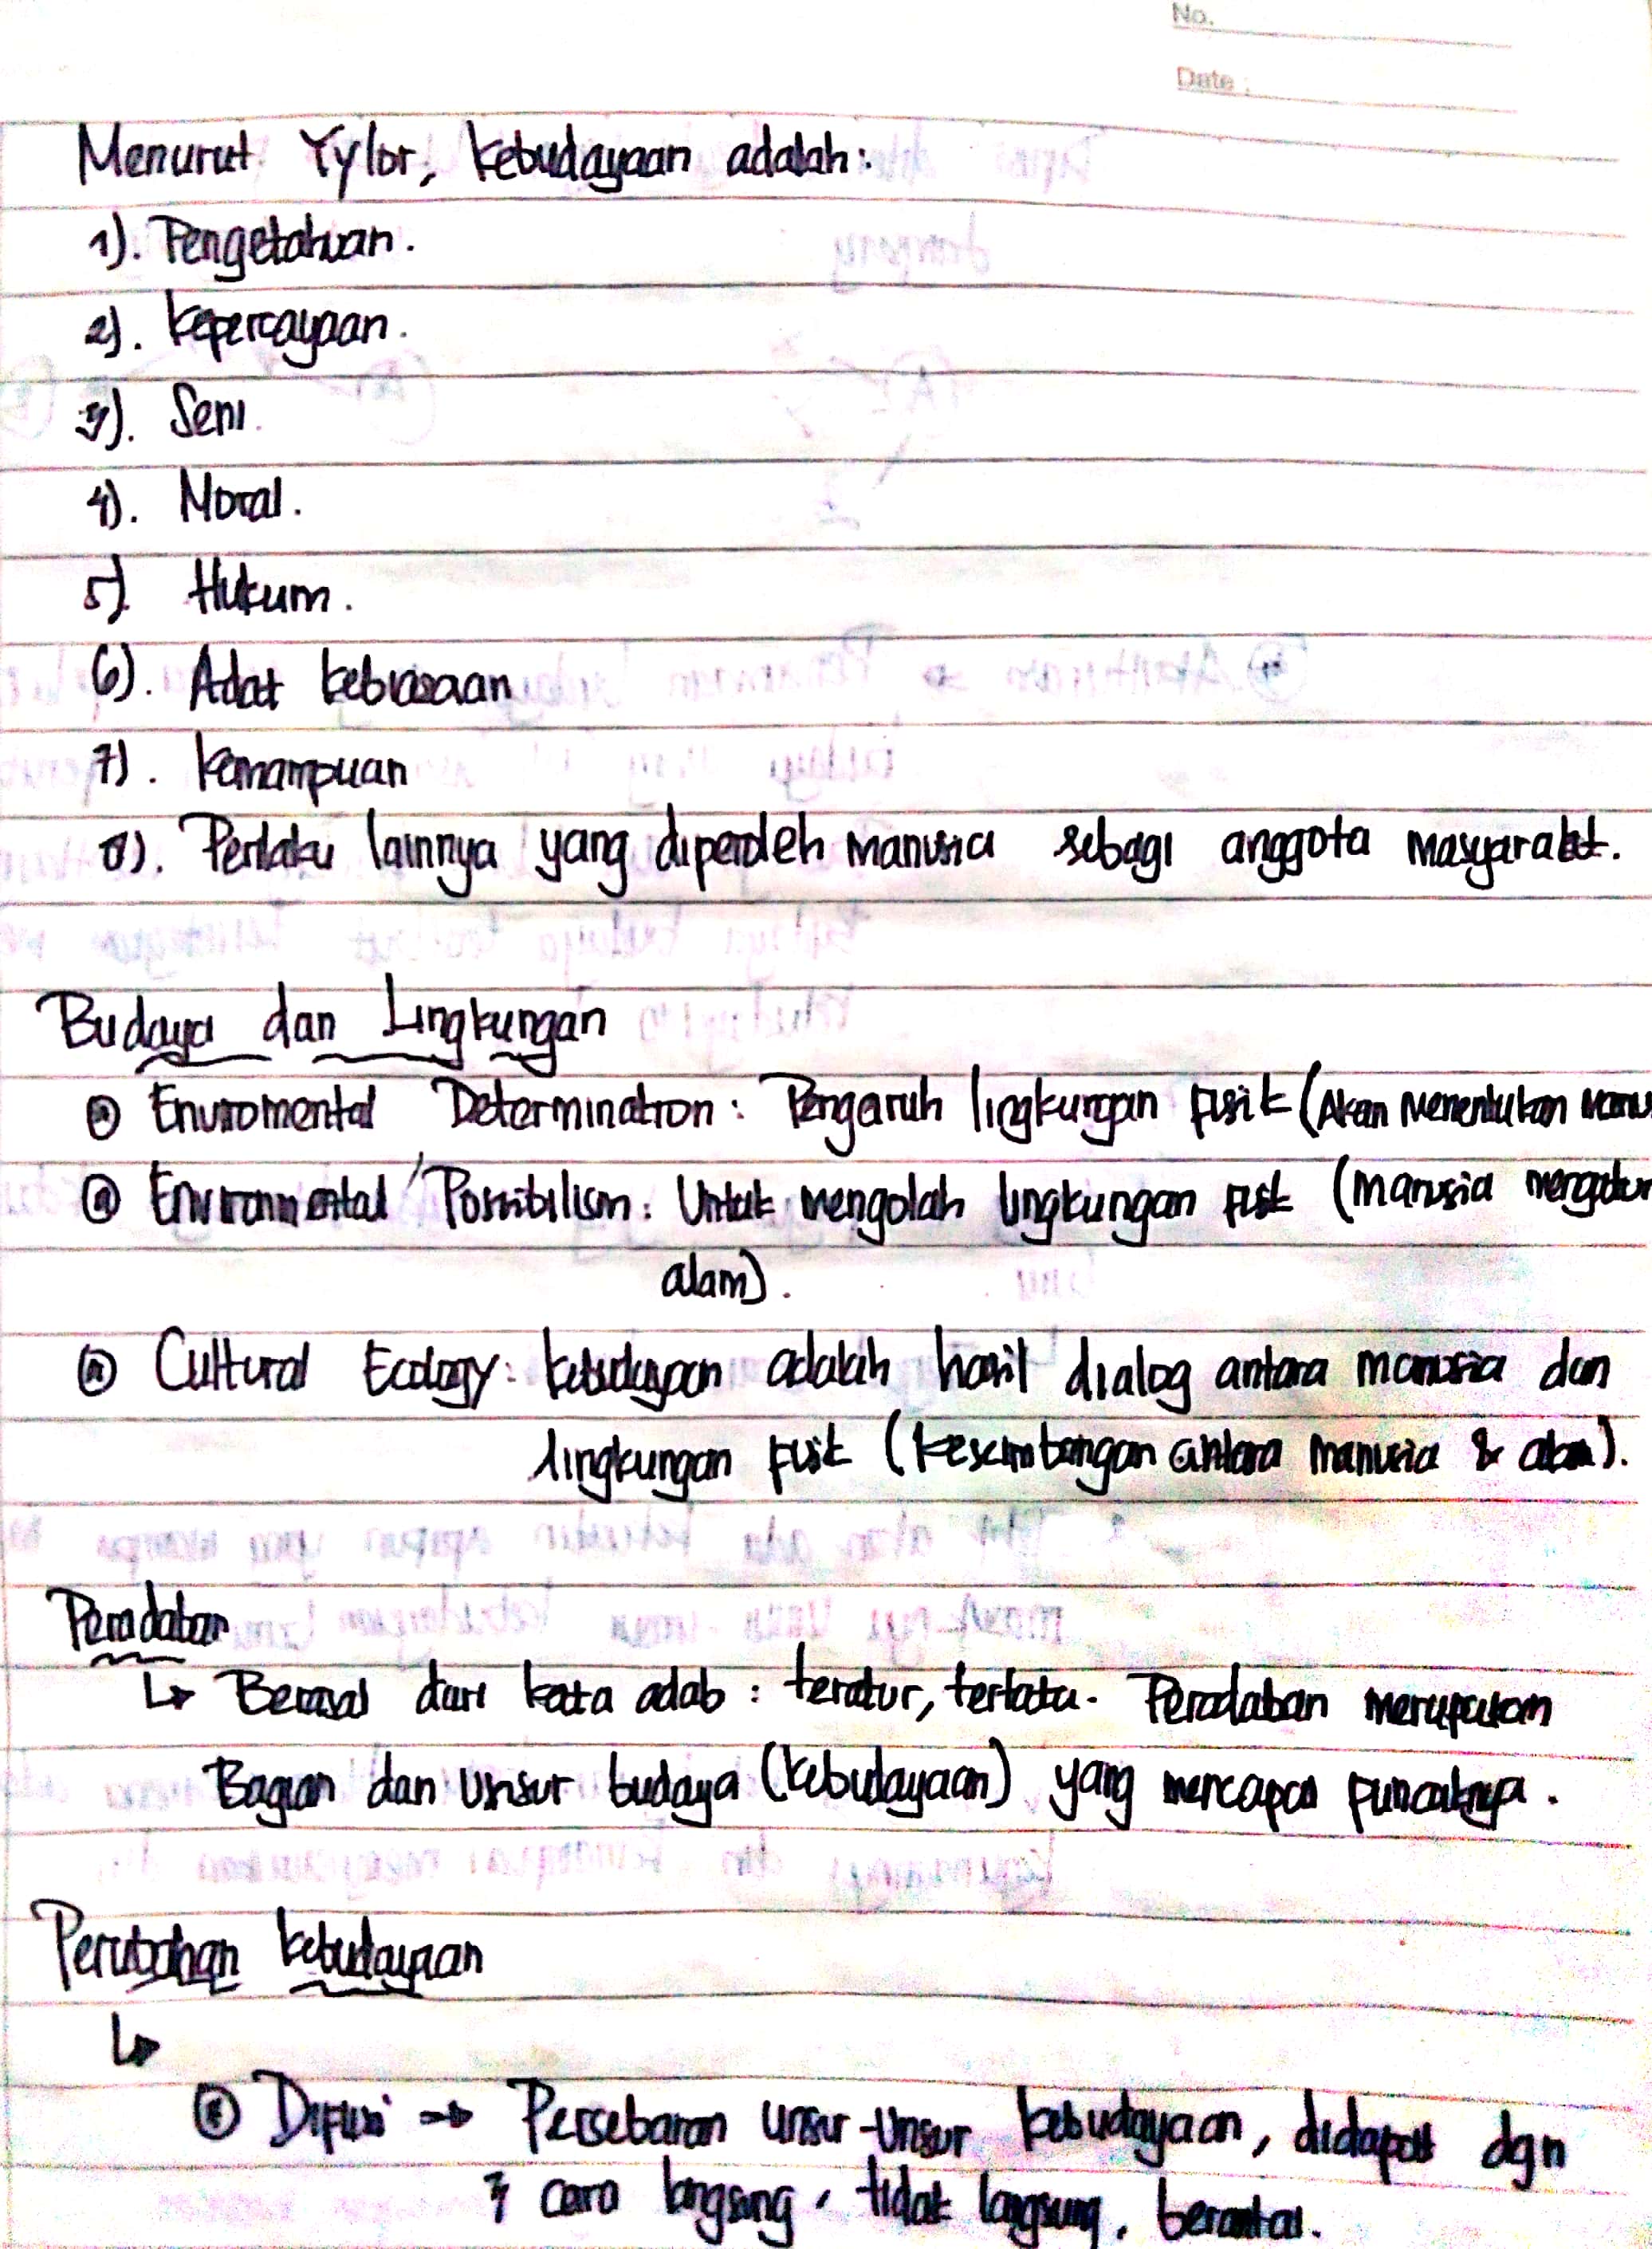 No.
Date :
Menurut Tylor, kebudayaan adalah:
1). Pengetahuan.
2). kepercayaan.
3). Seni.
4). Moral.
5) Hukum.
6). Adat kebiasaan
7). kemampuan
8). Perilaku lainnya yang diperoleh manusia sebagi anggota masyarakat.
Budaya dan Lingkungan
Enviromental Determination: Pengaruh lingkungan fisik (Akan Menentukan
Environmental Possibilism: Untuk mengolah lingkungan fisik (manusia mengatur
alam).
Cultural Ecology: kebudayaan adalah hasil dialog antara manusia dan
lingkungan fisik (keseimbangan antara manusia & alam).
Peradaban
↳ Berasal dari kata adab : teratur, tertata. Peradaban merupakan
Bagian dan unsur budaya (kebudayaan) yang mencapai puncaknya.
Perubahan kebudayaan
↳
Difusi → Persebaran unsur-unsur kebudayaan, didapat dgn
3 cara langsung, tidak langsung, berantai.